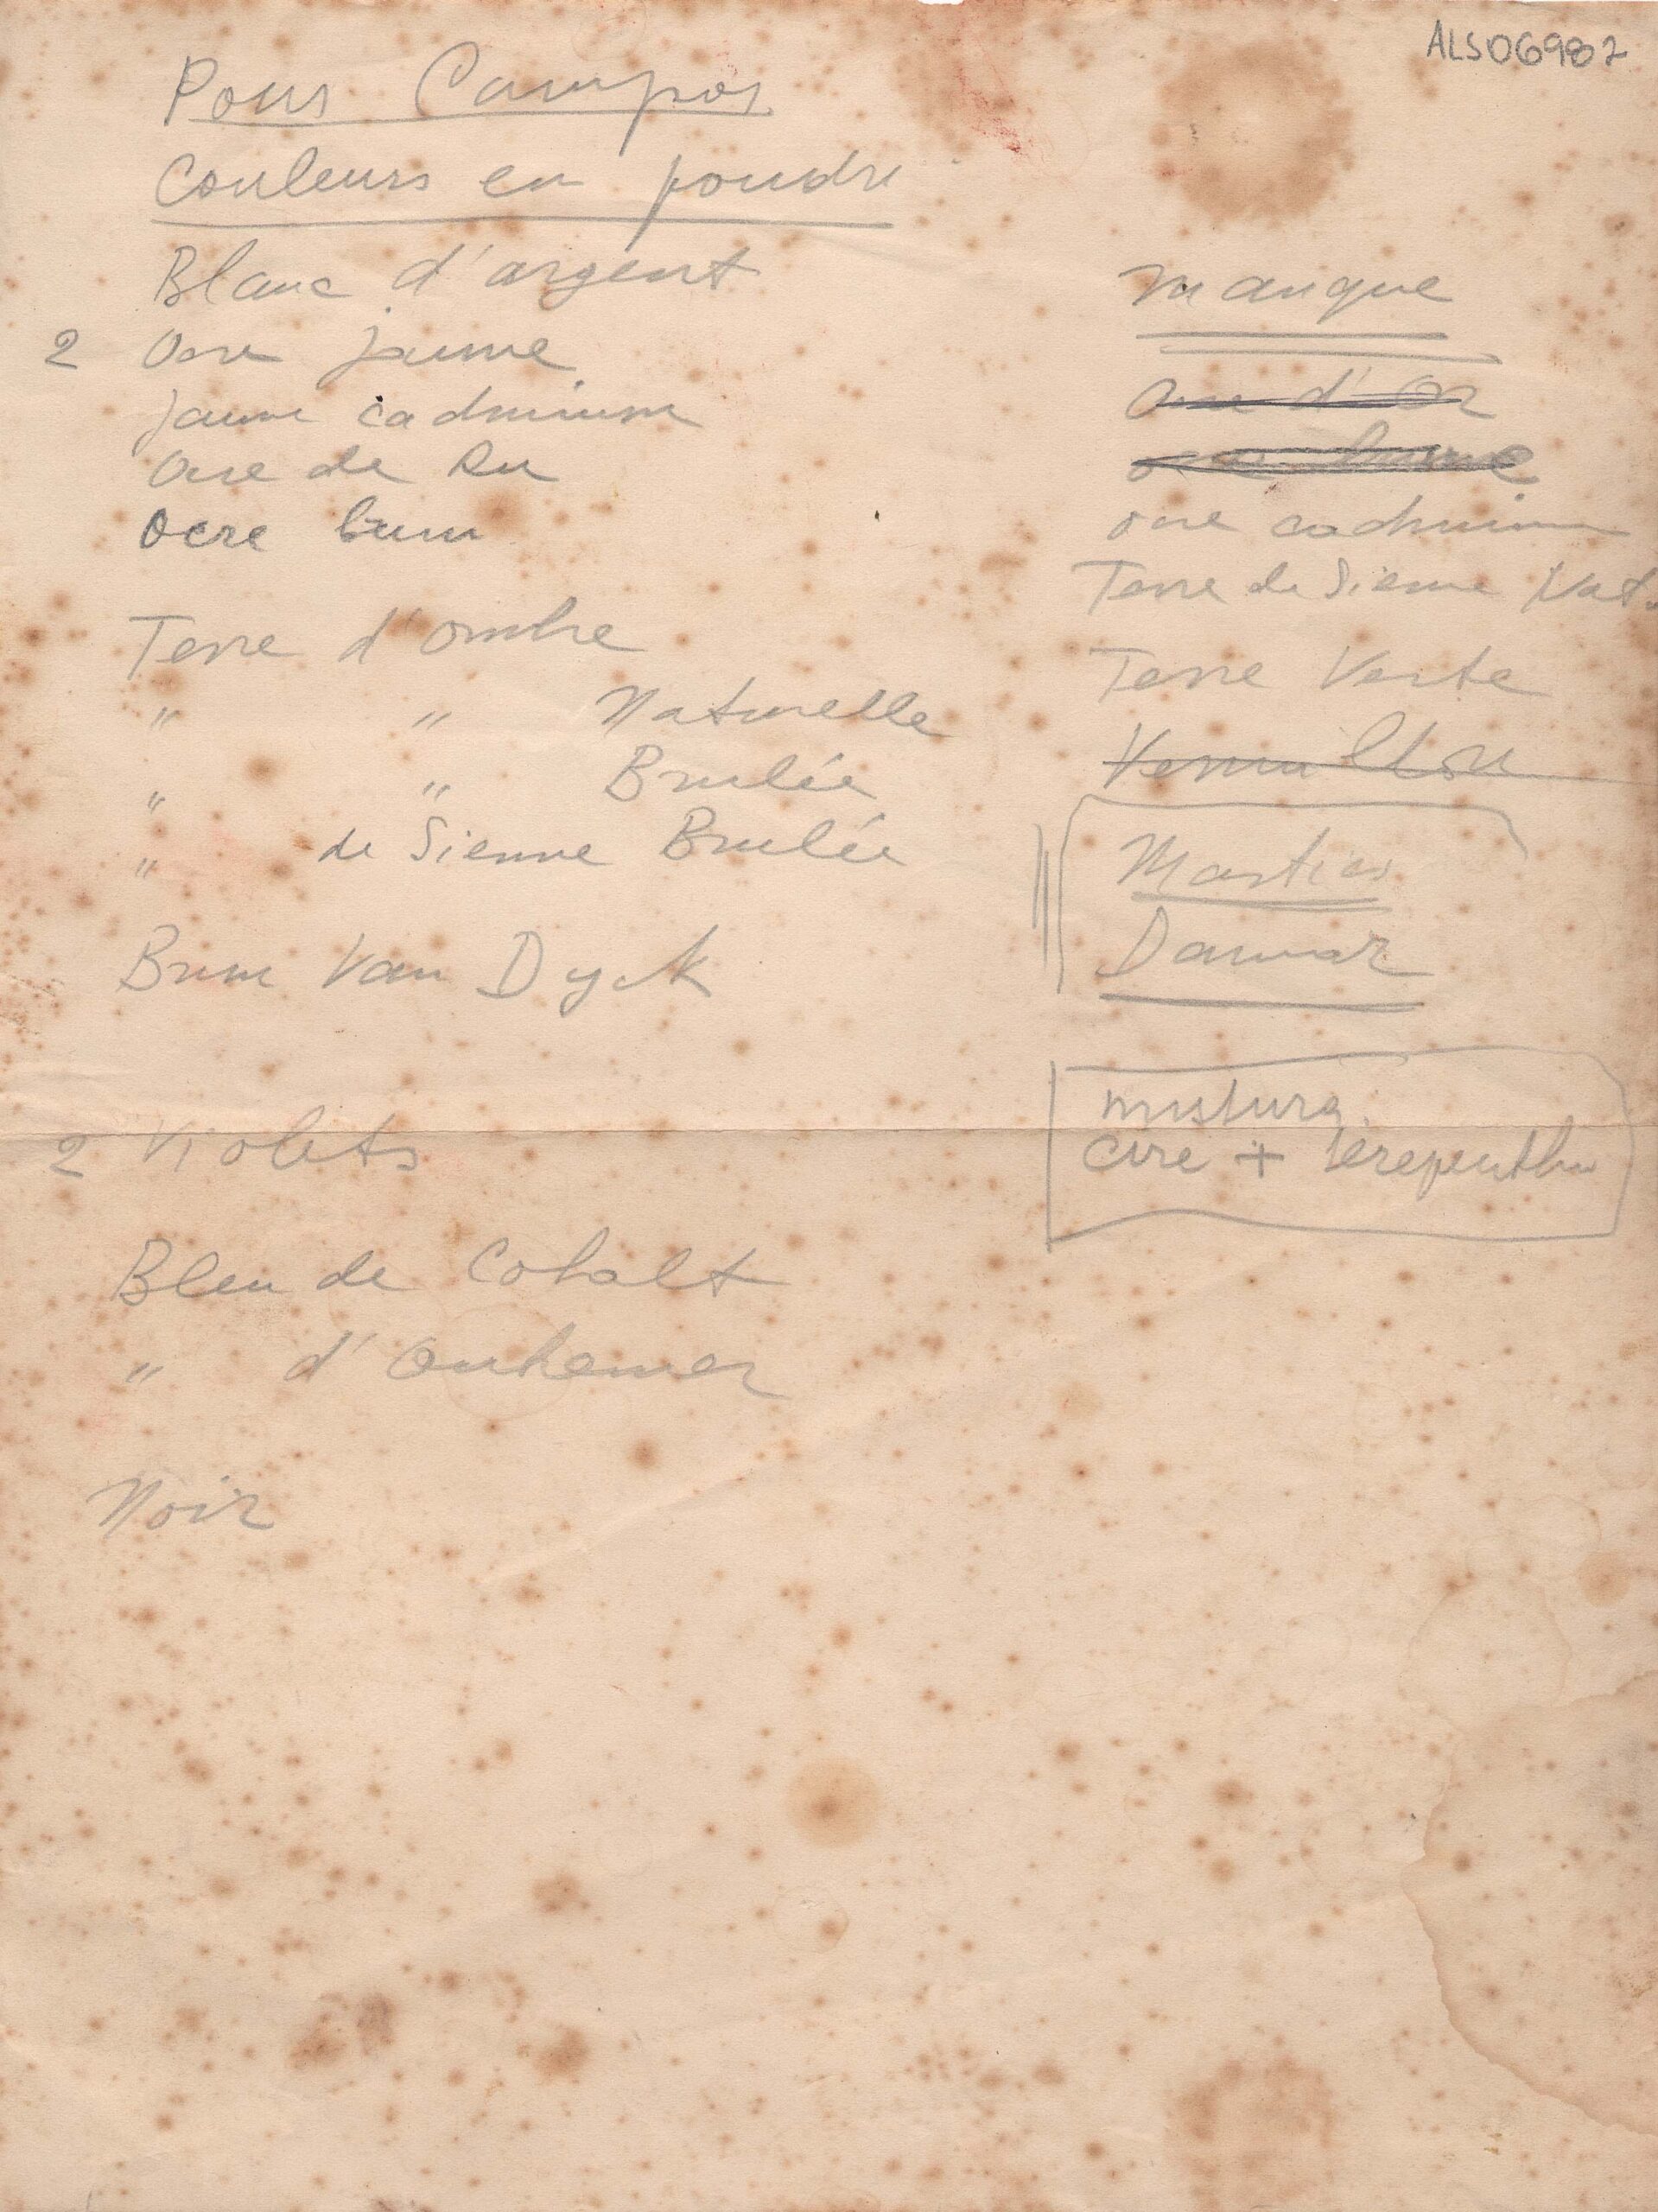 ALS06982
Pour Campos
Couleurs en poudre
Blanc d'argent
2 Ocre jaune
jaune cadmium
Ocre de Ru
Ocre brun
Terre d'ombre
" " Naturelle
" " Brulée
" de Sienne Brulée
Brun Van Dyck
2 Violets
Bleu de Cobalt
" d'Outremer
Noir
manque
Ocre d'Or
ocre brune
ocre cadmium
Terre de Sienne Nat.
Terre Verte
Vermillon
Mastics
Dammar
mistura
cire + térépenthine